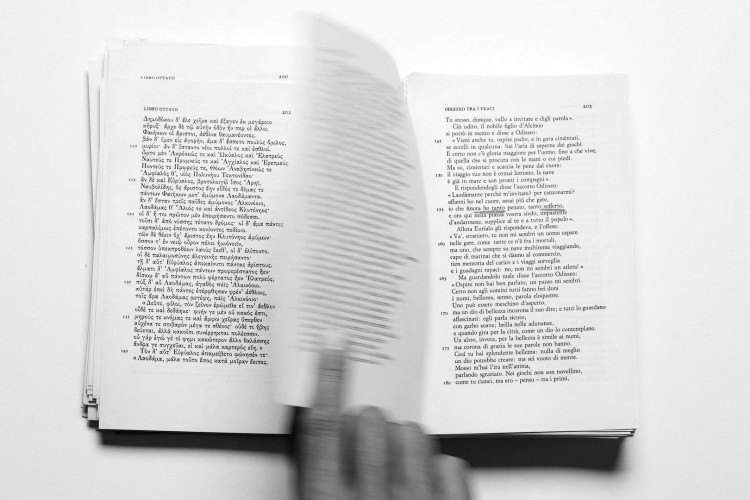 LIBRO OTTAVO 200
LIBRO OTTAVO 202
Δημοδόκου δ' ἕλε χεῖρα καὶ ἔξαγεν ἐκ μεγάροιο
κῆρυξ· ἄρχε δὲ τῷ αὐτὴν ὁδὸν ἥν περ οἱ ἄλλοι
Φαιήκων οἱ ἄριστοι, ἀέθλια θαυμανέοντες.
βὰν δ' ἴμεν εἰς ἀγορήν, ἅμα δ' ἕσπετο πουλὺς ὅμιλος,
110 μυρίοι· ἂν δ' ἵσταντο νέοι πολλοί τε καὶ ἐσθλοί.
ὦρτο μὲν Ἀκρόνεώς τε καὶ Ὠκύαλος καὶ Ἐλατρεὺς
Ναυτεύς τε Πρυμνεύς τε καὶ Ἀγχίαλος καὶ Ἐρετμεὺς
Ποντεύς τε Πρῳρεύς τε, Θόων Ἀναβησίνεώς τε
Ἀμφίαλός θ', υἱὸς Πολυνήου Τεκτονίδαο·
115 ἂν δὲ καὶ Εὐρύαλος, βροτολοιγῷ ἶσος Ἄρηϊ,
Ναυβολίδης, ὃς ἄριστος ἔην εἶδός τε δέμας τε
πάντων Φαιήκων μετ' ἀμύμονα Λαοδάμαντα.
ἂν δ' ἔσταν τρεῖς παῖδες ἀμύμονος Ἀλκινόοιο,
Λαοδάμας θ' Ἅλιός τε καὶ ἀντίθεος Κλυτόνηος.
120 οἱ δ' ἦ τοι πρῶτον μὲν ἐπειρήσαντο πόδεσσι.
τοῖσι δ' ἀπὸ νύσσης τέτατο δρόμος· οἱ δ' ἅμα πάντες
καρπαλίμως ἐπέτοντο κονίοντες πεδίοιο.
τῶν δὲ θέειν ὄχ' ἄριστος ἔην Κλυτόνηος ἀμύμων·
ὅσσον τ' ἐν νειῷ οὖρον πέλει ἡμιόνοιιν,
125 τόσσον ὑπεκπροθέων λαοὺς ἵκεθ', οἱ δ' ἐλίποντο.
οἱ δὲ παλαιμοσύνης ἀλεγεινῆς πειρήσαντο·
τῇ δ' αὖτ' Εὐρύαλος ἀπεκαίνυτο πάντας ἀρίστους.
ἅλματι δ' Ἀμφίαλος πάντων προφερέστατος ἦεν·
δίσκῳ δ' αὖ πάντων πολὺ φέρτατος ἦεν Ἐλατρεύς,
130 πὺξ δ' αὖ Λαοδάμας, ἀγαθὸς πάϊς Ἀλκινόοιο.
αὐτὰρ ἐπεὶ δὴ πάντες ἐτέρφθησαν φρέν' ἀέθλοις,
τοῖς ἄρα Λαοδάμας μετέφη, πάϊς Ἀλκινόοιο·
« Δεῦτε, φίλοι, τὸν ξεῖνον ἐρώμεθα εἴ τιν' ἄεθλον
οἶδέ τε καὶ δεδάηκε· φυήν γε μὲν οὐ κακός ἐστι,
135 μηρούς τε κνήμας τε καὶ ἄμφω χεῖρας ὕπερθεν
αὐχένα τε στιβαρὸν μέγα τε σθένος· οὐδέ τι ἥβης
δεύεται, ἀλλὰ κακοῖσι συνέρρηκται πολέεσσιν.
οὐ γὰρ ἐγώ γέ τί φημι κακώτερον ἄλλο θαλάσσης
ἄνδρα γε συγχεῦαι, εἰ καὶ μάλα καρτερὸς εἴη. »
140 Τὸν δ' αὖτ' Εὐρύαλος ἀπαμείβετο φώνησέν τε·
« Λαοδάμα, μάλα τοῦτο ἔπος κατὰ μοῖραν ἔειπες.
ODISSEO TRA I FEACI 203
Tu stesso, dunque, vallo a invitare e digli parola ».
Ciò udito, il nobile figlio d'Alcinoo
si portò in mezzo e disse a Odisseo:
145 « Vieni anche te, ospite padre, e in gara ciméntati,
se eccelli in qualcuna: hai l'aria di saperne dei giochi.
E certo non c'è gloria maggiore per l'uomo, fino a che vive,
di quella che si procura con le mani o coi piedi.
Ma su, ciméntati e scaccia le pene dal cuore:
150 il viaggio tuo non è ormai lontano, la nave
è già in mare e son pronti i compagni ».
E rispondendogli disse l'accorto Odisseo:
« Laodamante perché m'invitate? per canzonarmi?
affanni ho nel cuore, assai più che gare,
155 io che finora ho tanto penato, tanto sofferto,
e ora qui nella piazza vostra siedo, impaziente
d'andarmene, supplice al re e a tutto il popolo ».
Allora Eurialo gli rispondeva, e l'offese:
« Va', straniero, tu non mi sembri un uomo capace
160 nelle gare, come tante ce n'è fra i mortali,
ma uno, che sempre su nave multireme viaggiando,
capo di marinai che si dànno al commercio,
tien memoria del carico e i viaggi sorveglia
e i guadagni rapaci: no, non mi sembri un atleta! »
165 Ma guardandolo male disse l'accorto Odisseo:
« Ospite non hai ben parlato: un pazzo mi sembri.
Certo non agli uomini tutti fanno bei doni
i numi, bellezza, senno, parola eloquente.
Uno può essere meschino d'aspetto,
170 ma un dio di bellezza incorona il suo dire; e tutti lo guardano
affascinati: egli parla sicuro,
con garbo soave; brilla nelle adunanze,
e quando gira per la città, come un dio lo contemplano.
Un altro, invece, per la bellezza è simile ai numi,
175 ma corona di grazia le sue parole non hanno.
Così tu hai splendente bellezza: nulla di meglio
un dio potrebbe creare: ma sei vuoto di mente.
Mosso m'hai l'ira nell'anima,
parlando sgraziato. Nei giochi non son novellino,
180 come tu cianci, ma ero – penso – tra i primi,